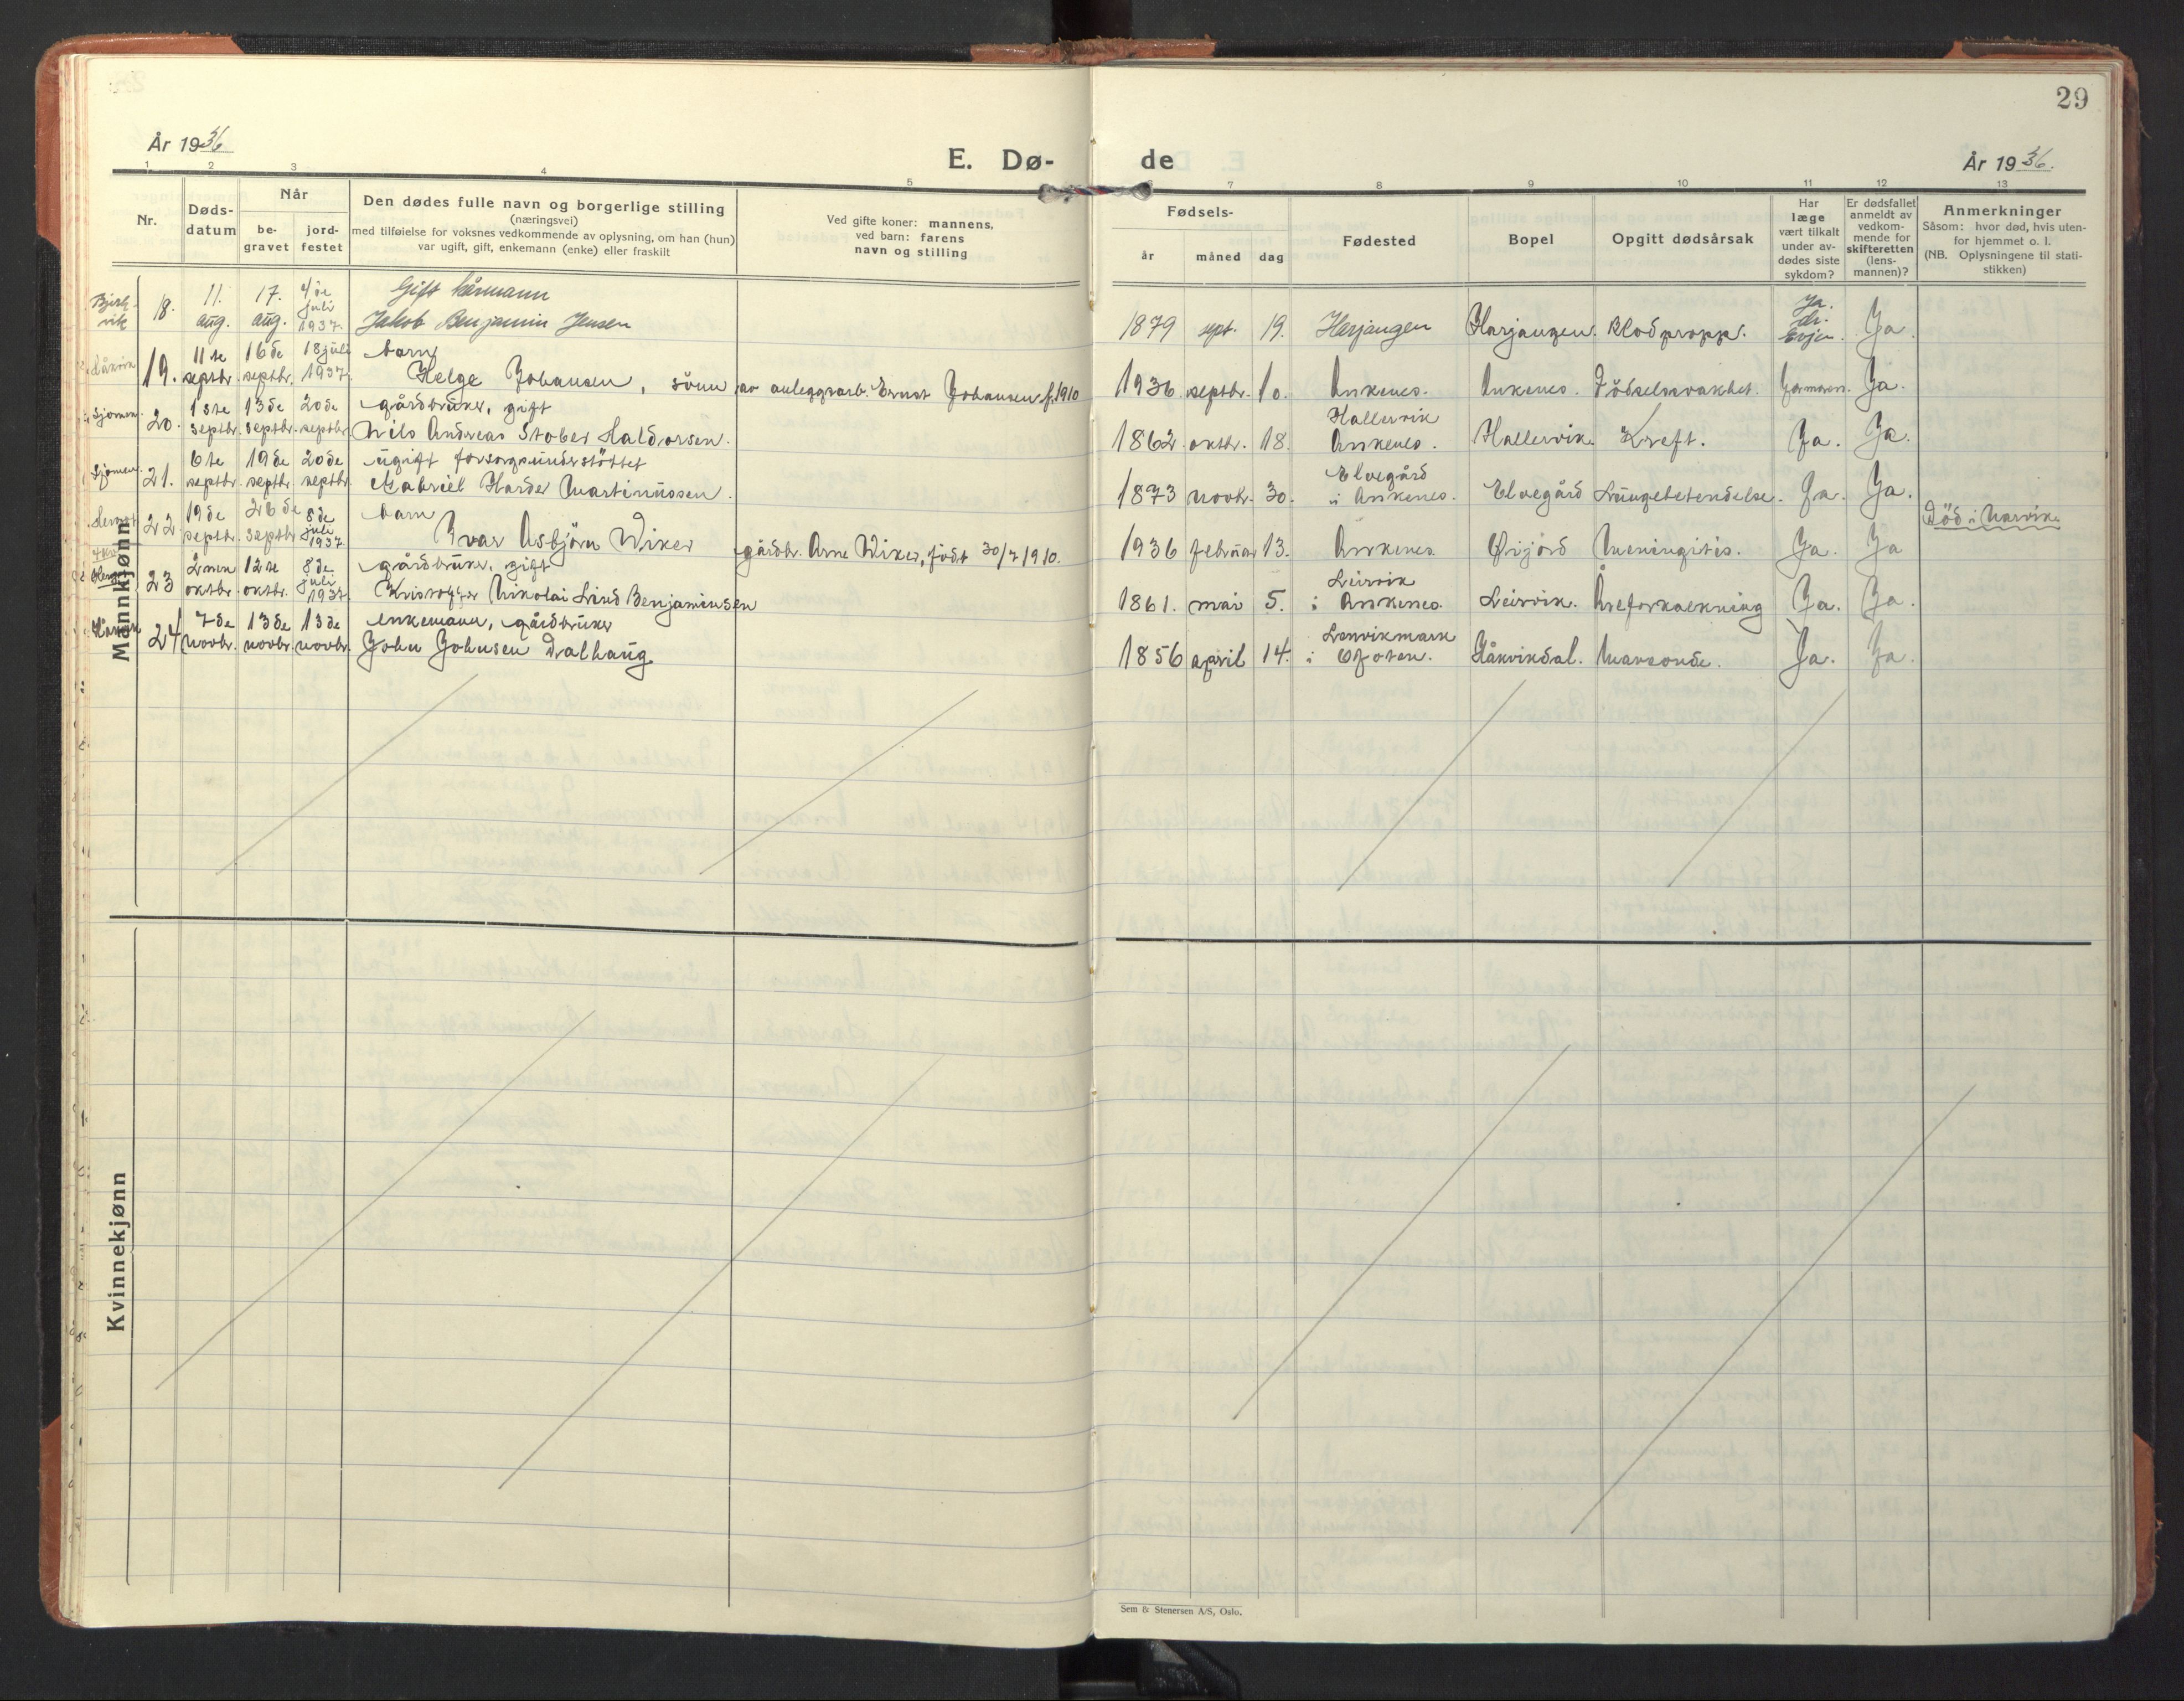 29
År 1936
E. Dø-
de
År 1936.
1 2 3 4 5
6 7 8 9 10 11 12 13
Nr.
Døds-
datum
Når
be-
gravet
jord-
festet
Den dødes fulle navn og borgerlige stilling
(næringsvei)
med tilføielse for voksnes vedkommende av oplysning, om han (hun)
var ugift, gift, enkemann (enke) eller fraskilt
Ved gifte koner: mannens,
ved barn: farens
navn og stilling
Fødsels-
år måned dag
Fødested
Bopel
Opgitt dødsårsak
Har
læge
vært tilkalt
under av-
dødes siste
sykdom?
Er dødsfallet
anmeldt av
vedkom-
mende for
skifteretten
(lens-
mannen)?
Anmerkninger
Såsom: hvor død, hvis uten-
for hjemmet o. l.
(NB. Oplysningene til stati-
stikken)
Bjerk-
vik
18. 11. aug. 17. aug. 4de juli 1937.
Gift kårmann
Jakob Benjamin Jensen
1879 sept. 19. Herjangen Harjangen. Blodpropp. Ja. dr. Evjen. Ja
Håkvik
19. 11te septbr. 16de septbr. 18 juli 1937.
barn
Helge Johansen, sönn av anleggsarb. Ernst Johansen f. 1910
1936. septbr. 10. Ankenes. Ankenes. Födselssvakhet. Jormoren. Ja.
Sjomen.
20. 1ste septbr. 13de septbr. 20de septbr.
gårdbruker, gift
Nils Andreas Stober Haldorsen.
1862. oktbr. 18. Hallervik Ankenes. Hallervik Kreft. Ja. Ja.
Sjomen.
21. 6te septbr. 19de septbr. 20de septbr.
ugift forsorgsunderstöttet
Gabriel Harder Martinussen.
1873 novbr. 30. Elvegård i Ankenes. Elvegård Lungebetendelse. Ja. Ja.
22 19de septbr. 26de septbr. 8de juli 1937.
barn
Ivar Asbjörn Wiker
gårdbr. Arne Wiker, födt 30/7 1910.
1936 februar 13. Ankenes. Öijord Meningitis. Ja. Ja
Död i Narvik.
23 2nen oktbr. 12te oktbr. 8de juli 1937.
gårdbruker, gift
Kristoffer Nikolai Lind Benjaminsen
1861. mai 5. Leirvik i Ankenes. Leirvik. Åreforkalkning Ja. Ja.
Håkvik
24 7de novbr. 13de novbr. 13de novbr.
enkemann, gårdbruker
John Johnsen Dalhaug.
1856 april 14. Lenvikmark i Ofoten. Håkvikdal. Marsonde. Ja. Ja.
Mannkjønn
Kvinnekjønn
Sem & Stenersen A/S, Oslo.